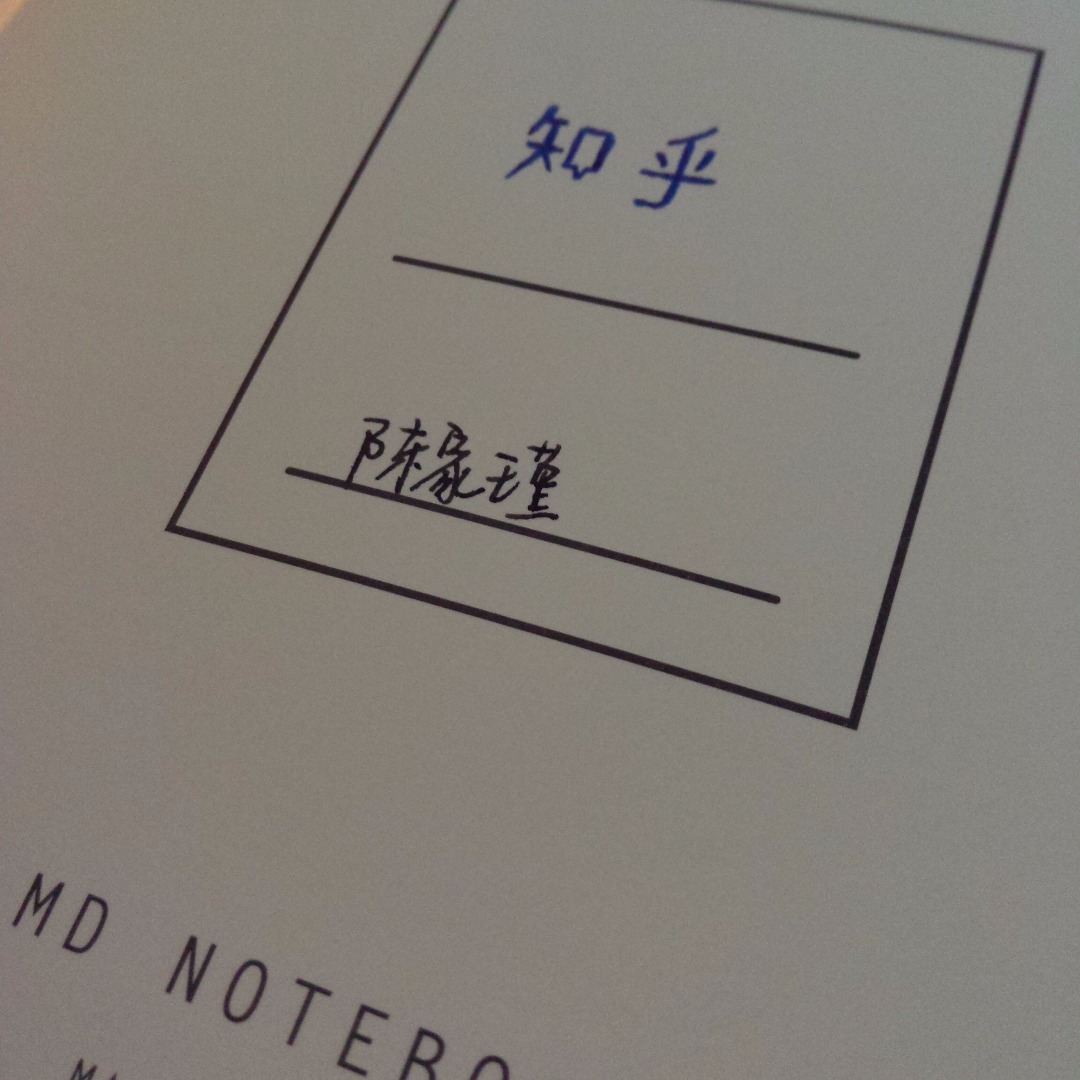 知乎
陈家瑾
MD NOTEBO